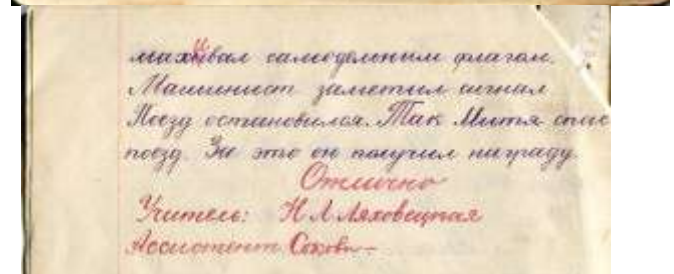 махивал самодельным флагом.
Машинист заметил сигнал
Поезд остановился. Так Митя спас
поезд. За это он получил награду.
Отлично
Учитель: Н Л Ляховецкая
Ассистент